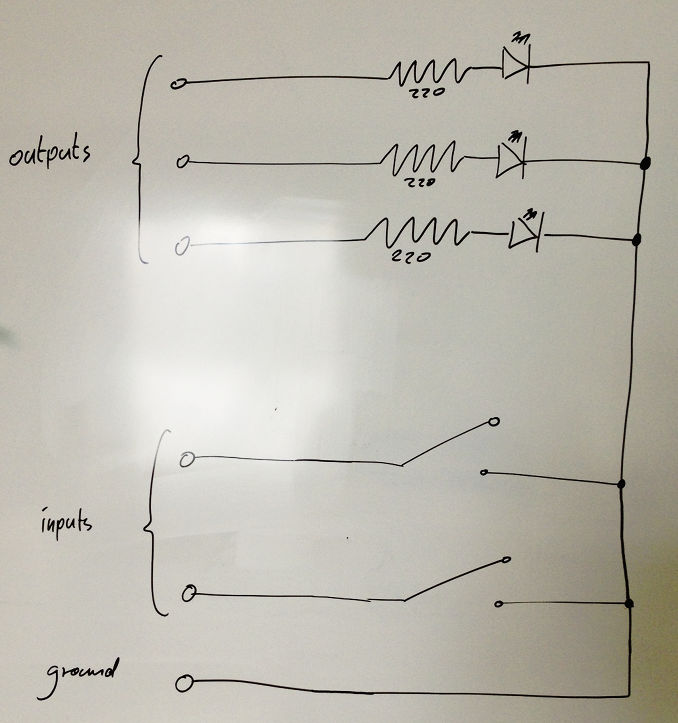 220
outputs
220
220
inputs
ground